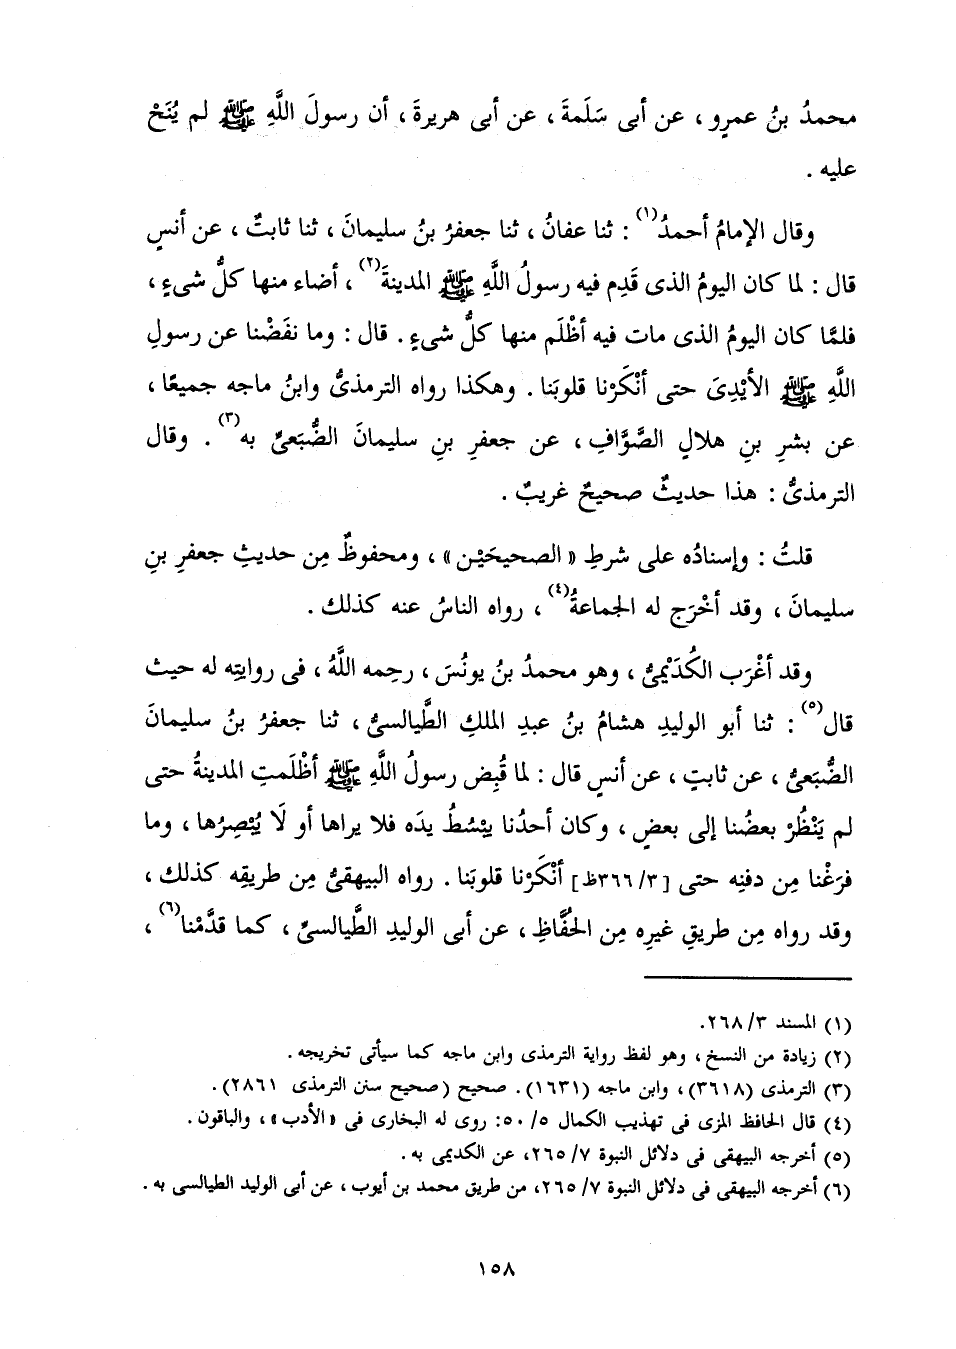 محمدُ بنُ عمرٍو ، عن أبى سَلَمةَ ، عن أبى هريرةَ ، أن رسولَ اللَّهِ ﷺ لم يُنَحْ
عليه .
وقال الإمامُ أحمدُ(١) : ثنا عفانُ ، ثنا جعفرُ بنُ سليمانَ ، ثنا ثابتٌ ، عن أنسٍ
قال : لما كان اليومُ الذى قَدِم فيه رسولُ اللَّهِ ﷺ المدينةَ(٢) ، أضاء منها كلُّ شىءٍ ،
فلمَّا كان اليومُ الذى مات فيه أظْلَم منها كلُّ شىءٍ . قال : وما نفَضْنا عن رسولِ
اللَّهِ ﷺ الأيْدِىَ حتى أنْكَرْنا قلوبَنا . وهكذا رواه الترمذىُّ وابنُ ماجه جميعًا ،
عن بشرِ بنِ هلالٍ الصَّوَّافِ ، عن جعفرِ بنِ سليمانَ الضُّبَعىِّ به(٣) . وقال
الترمذىُّ : هذا حديثٌ صحيحٌ غريبٌ .
قلتُ : وإسنادُه على شرطِ « الصحيحَيْن » ، ومحفوظٌ مِن حديثِ جعفرِ بنِ
سليمانَ ، وقد أخْرَج له الجماعةُ(٤) ، رواه الناسُ عنه كذلك .
وقد أغْرَب الكُدَيْمىُّ ، وهو محمدُ بنُ يونُسَ ، رحِمه اللَّهُ ، فى روايتِه له حيث
قال(٥) : ثنا أبو الوليدِ هشامُ بنُ عبدِ الملكِ الطَّيالسىُّ ، ثنا جعفرُ بنُ سليمانَ
الضُّبَعىُّ ، عن ثابتٍ ، عن أنسٍ قال : لما قُبِض رسولُ اللَّهِ ﷺ أظْلَمتِ المدينةُ حتى
لم يَنْظُرْ بعضُنا إلى بعضٍ ، وكان أحدُنا يبْسُطُ يدَه فلا يراها أو لَا يُبْصِرُها ، وما
فرَغْنا مِن دفنِه حتى [٣/ ٣٦٦ظ] أنْكَرْنا قلوبَنا . رواه البيهقىُّ مِن طريقِه كذلك ،
وقد رواه مِن طريقِ غيرِه مِن الحُفَّاظِ ، عن أبى الوليدِ الطَّيالسىِّ ، كما قدَّمْنا(٦) ،
(١) المسند ٣/ ٢٦٨.
(٢) زيادة من النسخ ، وهو لفظ رواية الترمذى وابن ماجه كما سيأتى تخريجه .
(٣) الترمذى (٣٦١٨) ، وابن ماجه (١٦٣١) . صحيح (صحيح سنن الترمذى ٢٨٦١) .
(٤) قال الحافظ المزى فى تهذيب الكمال ٥/ ٥٠: روى له البخارى فى « الأدب » ، والباقون .
(٥) أخرجه البيهقى فى دلائل النبوة ٧/ ٢٦٥، عن الكديمى به .
(٦) أخرجه البيهقى فى دلائل النبوة ٧/ ٢٦٥، من طريق محمد بن أيوب ، عن أبى الوليد الطيالسى به .
١٥٨